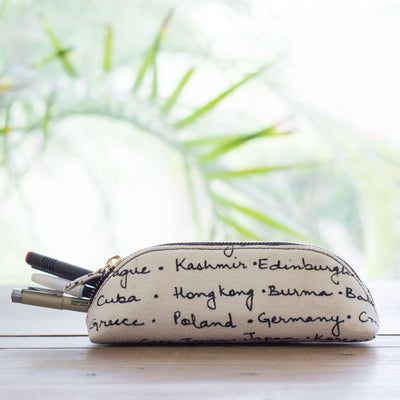 Kashmir • Edinburgh
Cuba • Hong Kong • Burma •
Greece • Poland • Germany •
Japan